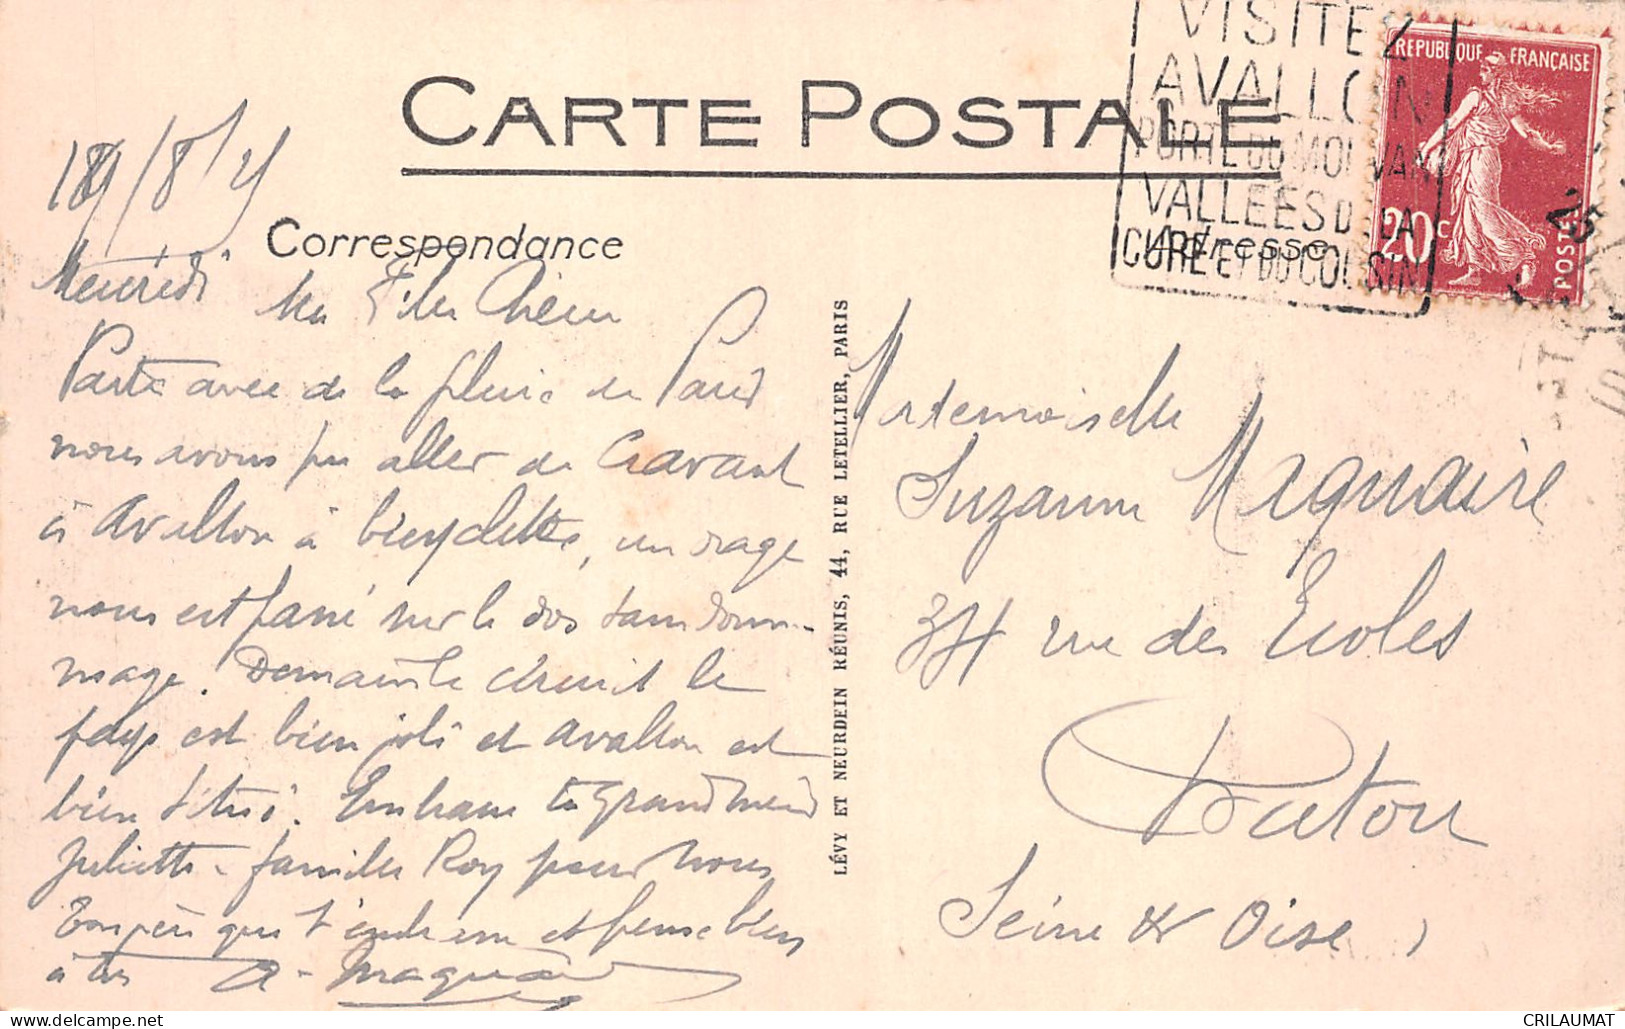 CARTE POSTALE
Correspondance
Adresse
VISITEZ
AVALLON
PORTE DU MORVAN
VALLEES DE LA
CURE ET DU COUSIN
REPUBLIQUE FRANÇAISE
20c
POSTES
25
/8/25
Mercredi
Ma
Partis avec de la pluie de Paris
nous avons pu aller de Cravant
à Avallon à bicyclette, un orage
nous est passé sur le dos sans dom-
mage. Demain le circuit le
pays est bien joli et Avallon est
bien situé. Embrasse ta grand mère
Juliette - famille Roy pour nous
Ton père qui t'embrasse et pense bien
à toi
LÉVY ET NEURDEIN RÉUNIS, 44, RUE LETELLIER, PARIS
Mademoiselle
Suzanne Maquaire
34 rue des Ecoles
Chatou
Seine & Oise
CRILAUMAT